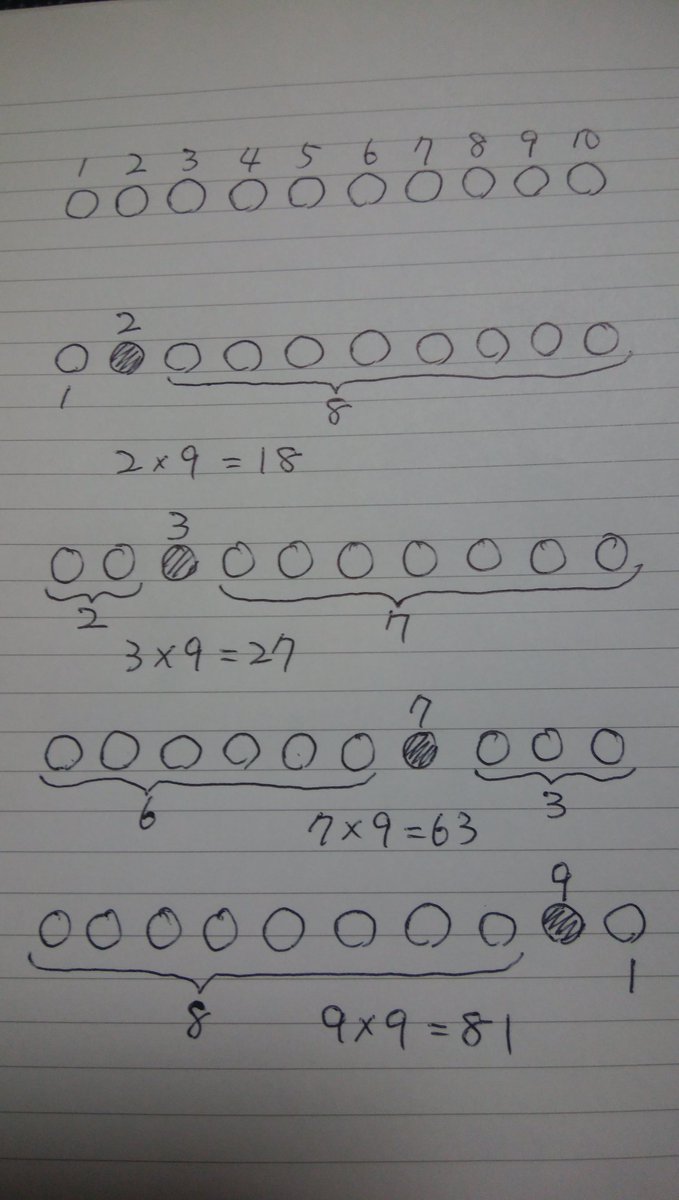 1 2 3 4 5 6 7 8 9 10
2
1 8
2×9=18
3
2 7
3×9=27
7
6 3
7×9=63
9
8 1
9×9=81